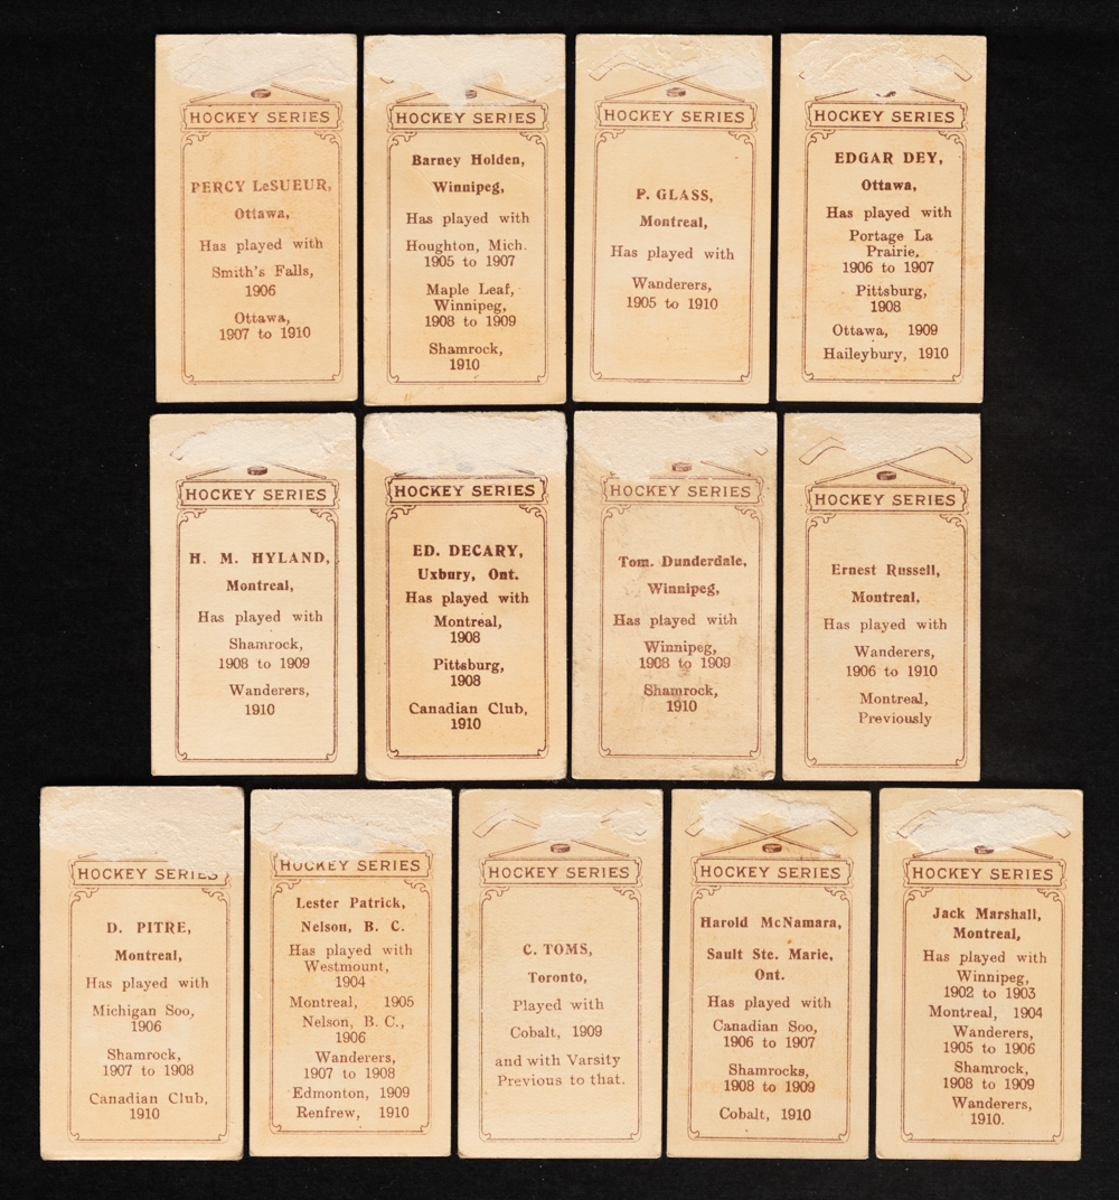 HOCKEY SERIES
PERCY LeSUEUR,
Ottawa,
Has played with
Smith's Falls,
1906
Ottawa,
1907 to 1910
HOCKEY SERIES
Barney Holden,
Winnipeg,
Has played with
Houghton, Mich.
1905 to 1907
Maple Leaf,
Winnipeg,
1908 to 1909
Shamrock,
1910
HOCKEY SERIES
P. GLASS,
Montreal,
Has played with
Wanderers,
1905 to 1910
HOCKEY SERIES
EDGAR DEY,
Ottawa,
Has played with
Portage La
Prairie,
1906 to 1907
Pittsburg,
1908
Ottawa, 1909
Haileybury, 1910
HOCKEY SERIES
H. M. HYLAND,
Montreal,
Has played with
Shamrock,
1908 to 1909
Wanderers,
1910
HOCKEY SERIES
ED. DECARY,
Uxbury, Ont.
Has played with
Montreal,
1908
Pittsburg,
1908
Canadian Club,
1910
HOCKEY SERIES
Tom. Dunderdale,
Winnipeg,
Has played with
Winnipeg,
1908 to 1909
Shamrock,
1910
HOCKEY SERIES
Ernest Russell,
Montreal,
Has played with
Wanderers,
1906 to 1910
Montreal,
Previously
HOCKEY SERIES
D. PITRE,
Montreal,
Has played with
Michigan Soo,
1906
Shamrock,
1907 to 1908
Canadian Club,
1910
HOCKEY SERIES
Lester Patrick,
Nelson, B. C.
Has played with
Westmount,
1904
Montreal, 1905
Nelson, B. C.,
1906
Wanderers,
1907 to 1908
Edmonton, 1909
Renfrew, 1910
HOCKEY SERIES
C. TOMS,
Toronto,
Played with
Cobalt, 1909
and with Varsity
Previous to that.
HOCKEY SERIES
Harold McNamara,
Sault Ste. Marie,
Ont.
Has played with
Canadian Soo,
1906 to 1907
Shamrocks,
1908 to 1909
Cobalt, 1910
HOCKEY SERIES
Jack Marshall,
Montreal,
Has played with
Winnipeg,
1902 to 1903
Montreal, 1904
Wanderers,
1905 to 1906
Shamrock,
1908 to 1909
Wanderers,
1910.